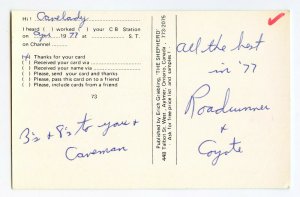 Hi ! Cavelady.
I heard ( ) worked ( ) your C B Station
on 19 77 at S. T.
on Channel
Thanks for your card
( ) Received your card via
( ) Received your name via
( ) Please, send your card and thanks
( ) Please, pass this card on to a friend
( ) Please, include cards from a friend
73
3's & 8's to you &
Caveman
Published by Erich Griebling, "THE SHEPHERD"
448 Talbot St. West - Aylmer, Ontario, Canada - 773-2015
Ask for free price list and samples !
all the best
in '77
Roadrunner
&
Coyote